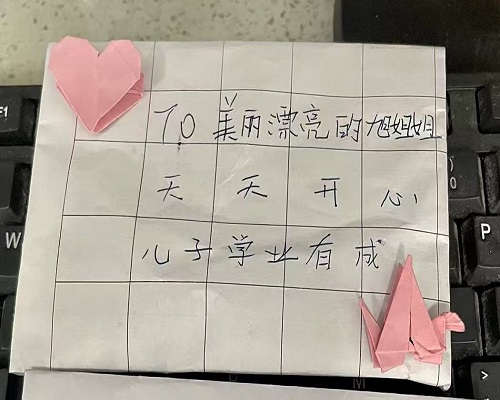 TO 美丽漂亮的旭姐姐
天天开心
儿子学业有成
F1
W
P